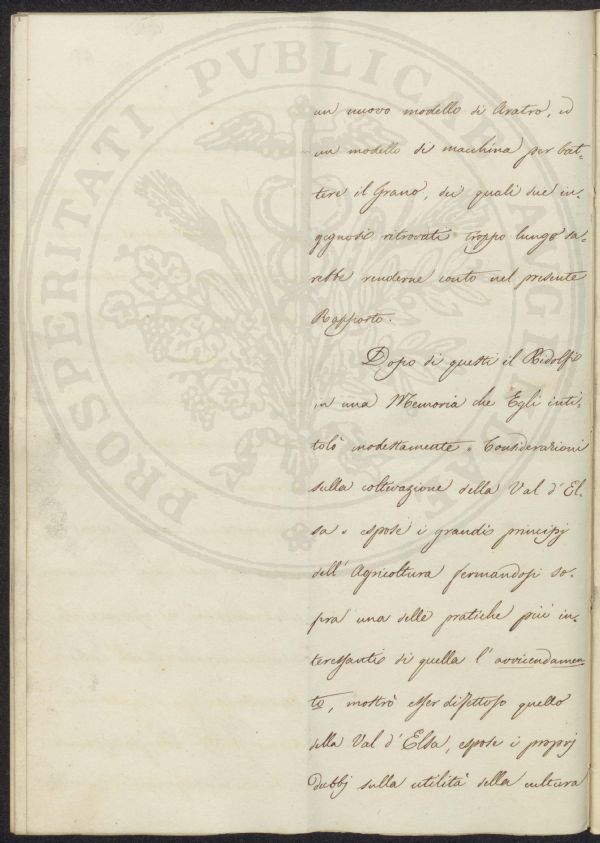 un nuovo modello di Aratro, ed
un modello di macchina per bat=
tere il Grano, dei quali sue in=
gegnosi ritrovati troppo lungo sa=
rebbe renderne conto nel presente
Rapporto.
Dopo di questi il Ridolfi
in una Memoria che Egli inti=
tolò modestamente "Considerazioni
sulla coltivazione della Val d'El=
sa" espose i grandi principj
dell'Agricoltura fermandosi so=
pra una delle pratiche più in=
teressanti di quella l'avvicendamen=
to, mostrò esser difettoso quello
della Val d'Elsa, espose i proprj
dubbj sulla utilità della cultura
PROSPERITATI PVBLICAE AVGENDAE